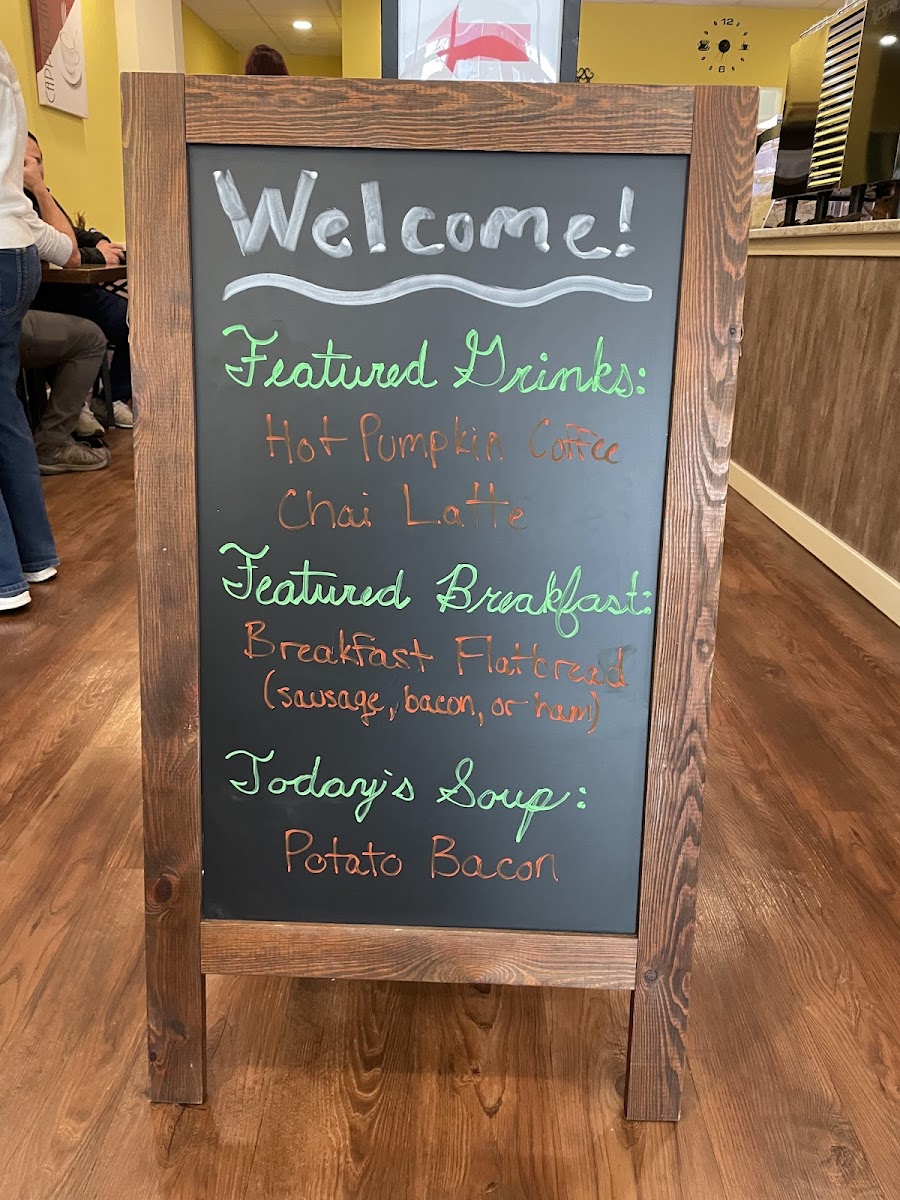 Welcome!
Featured Drinks:
Hot Pumpkin Coffee
Chai Latte
Featured Breakfast:
Breakfast Flatbread
(sausage, bacon, or ham)
Today's Soup:
Potato Bacon
12
6